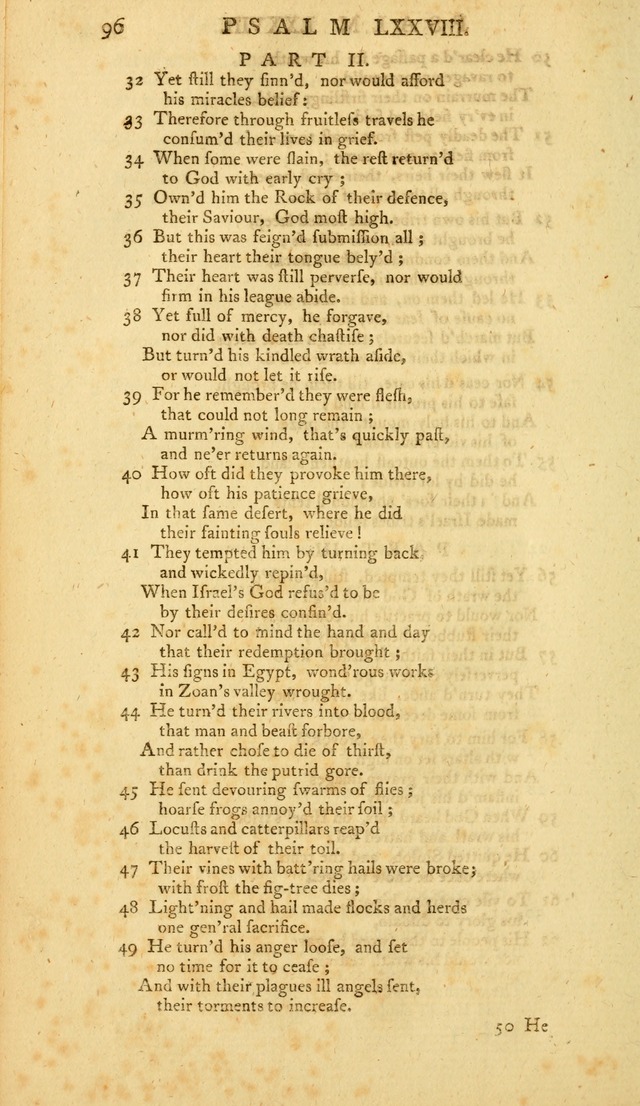 96 PSALM LXXVIII.
PART II.
32 Yet ſtill they ſinn'd, nor would afford
his miracles belief:
33 Therefore through fruitleſs travels he
conſum'd their lives in grief.
34 When ſome were ſlain, the reſt return'd
to God with early cry ;
35 Own'd him the Rock of their defence,
their Saviour, God moſt high.
36 But this was feign'd ſubmiſſion all ;
their heart their tongue bely'd ;
37 Their heart was ſtill perverſe, nor would
firm in his league abide.
38 Yet full of mercy, he forgave,
nor did with death chaſtiſe ;
But turn'd his kindled wrath aſide,
or would not let it riſe.
39 For he remember'd they were fleſh,
that could not long remain ;
A murm'ring wind, that's quickly paſt,
and ne'er returns again.
40 How oft did they provoke him there,
how oft his patience grieve,
In that ſame deſert, where he did
their fainting ſouls relieve !
41 They tempted him by turning back,
and wickedly repin'd,
When Iſrael's God refus'd to be
by their deſires confin'd.
42 Nor call'd to mind the hand and day
that their redemption brought ;
43 His ſigns in Egypt, wond'rous works
in Zoan's valley wrought.
44 He turn'd their rivers into blood,
that man and beaſt forbore,
And rather choſe to die of thirſt,
than drink the putrid gore.
45 He ſent devouring ſwarms of flies ;
hoarſe frogs annoy'd their ſoil ;
46 Locuſts and catterpillars reap'd
the harveſt of their toil.
47 Their vines with batt'ring hails were broke;
with froſt the fig-tree dies ;
48 Light'ning and hail made flocks and herds
one gen'ral ſacrifice.
49 He turn'd his anger looſe, and ſet
no time for it to ceaſe ;
And with their plagues ill angels ſent,
their torments to increaſe.
50 He